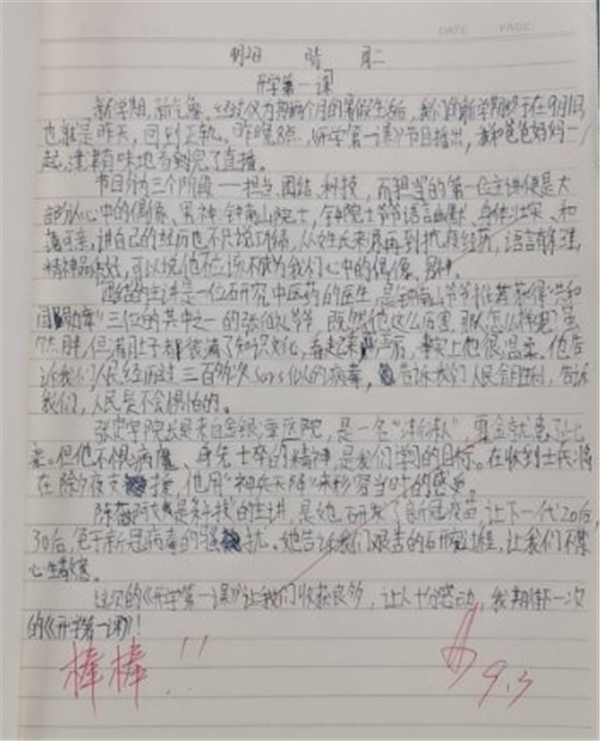 DATE PAGE
9月2日 晴 周二
开学第一课
新学期,新气象。经过仅为期两个月的暑假生活后,我们的新学期终于在9月1日
也就是昨天,回到正轨。昨晚8点,《开学第一课》节目播出,我和爸爸妈妈一
起,津津有味地看完了直播。
节目分为三个阶段——担当、团结、科技,而担当的第一位主讲便是大
部分人心中的偶像、男神钟南山院士,钟院士爷爷语言幽默、身体壮实、和
蔼可亲,讲自己的经历也不只说功绩,从姓氏来源再到抗疫经历,语言
精神品质好,可以说他不应该不成为我们心中的偶像、男神。
团结的主讲是一位研究中医药的医生,是钟南山爷爷推荐获得"共和
国勋章"三位的其中之一的张伯礼爷爷,既然他这么厉害,那怎么样呢?虽
然胖,但满肚子都装满了知识文化,看起来严肃,事实上也很温柔。他告
诉我们人民经历过三百多次sars似的病毒,告诉我们人民会胜利,告诉
我们,人民是不会惧怕的。
张定宇院长是来自金银潭医院,是一名"渐冻人"
但他不惧病魔、身先士卒的精神,是我们学习的目标。在收到士兵将
在除夕夜支援,他用"神兵天降"来形容当时的感受。
陈薇阿姨是"科技"的主讲,是她研发了新冠疫苗,让下一代20后,
30后,免于新冠病毒的骚扰。她告诉我们艰苦的研究过程,让我们不禁
心生敬意。
这次的《开学第一课》让我们收获良多,让人十分感动,我期待下一次
的《开学第一课》!
棒棒!!
9.3